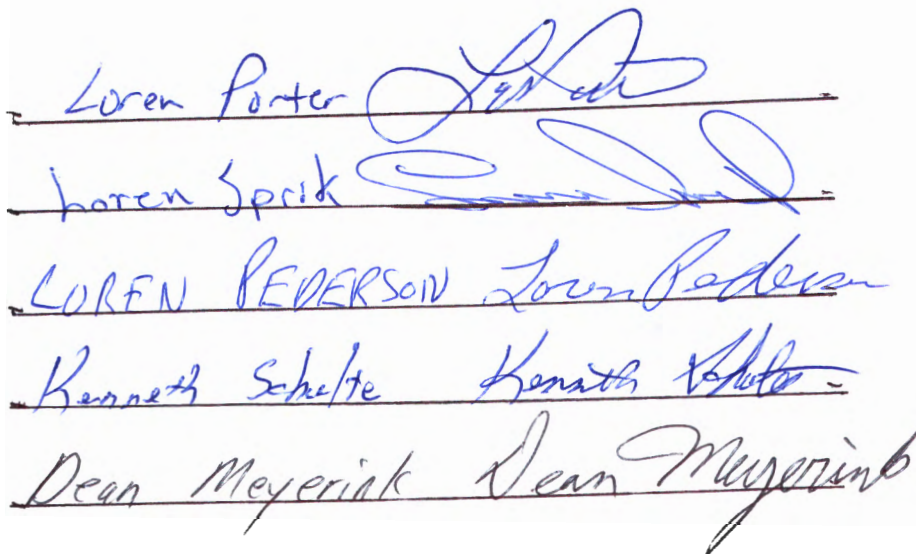 Loren Porter
Loren Sprik
LOREN PEDERSON Loren Pederson
Kenneth Schulte Kenneth Schulte
Dean Meyerink Dean Meyerink